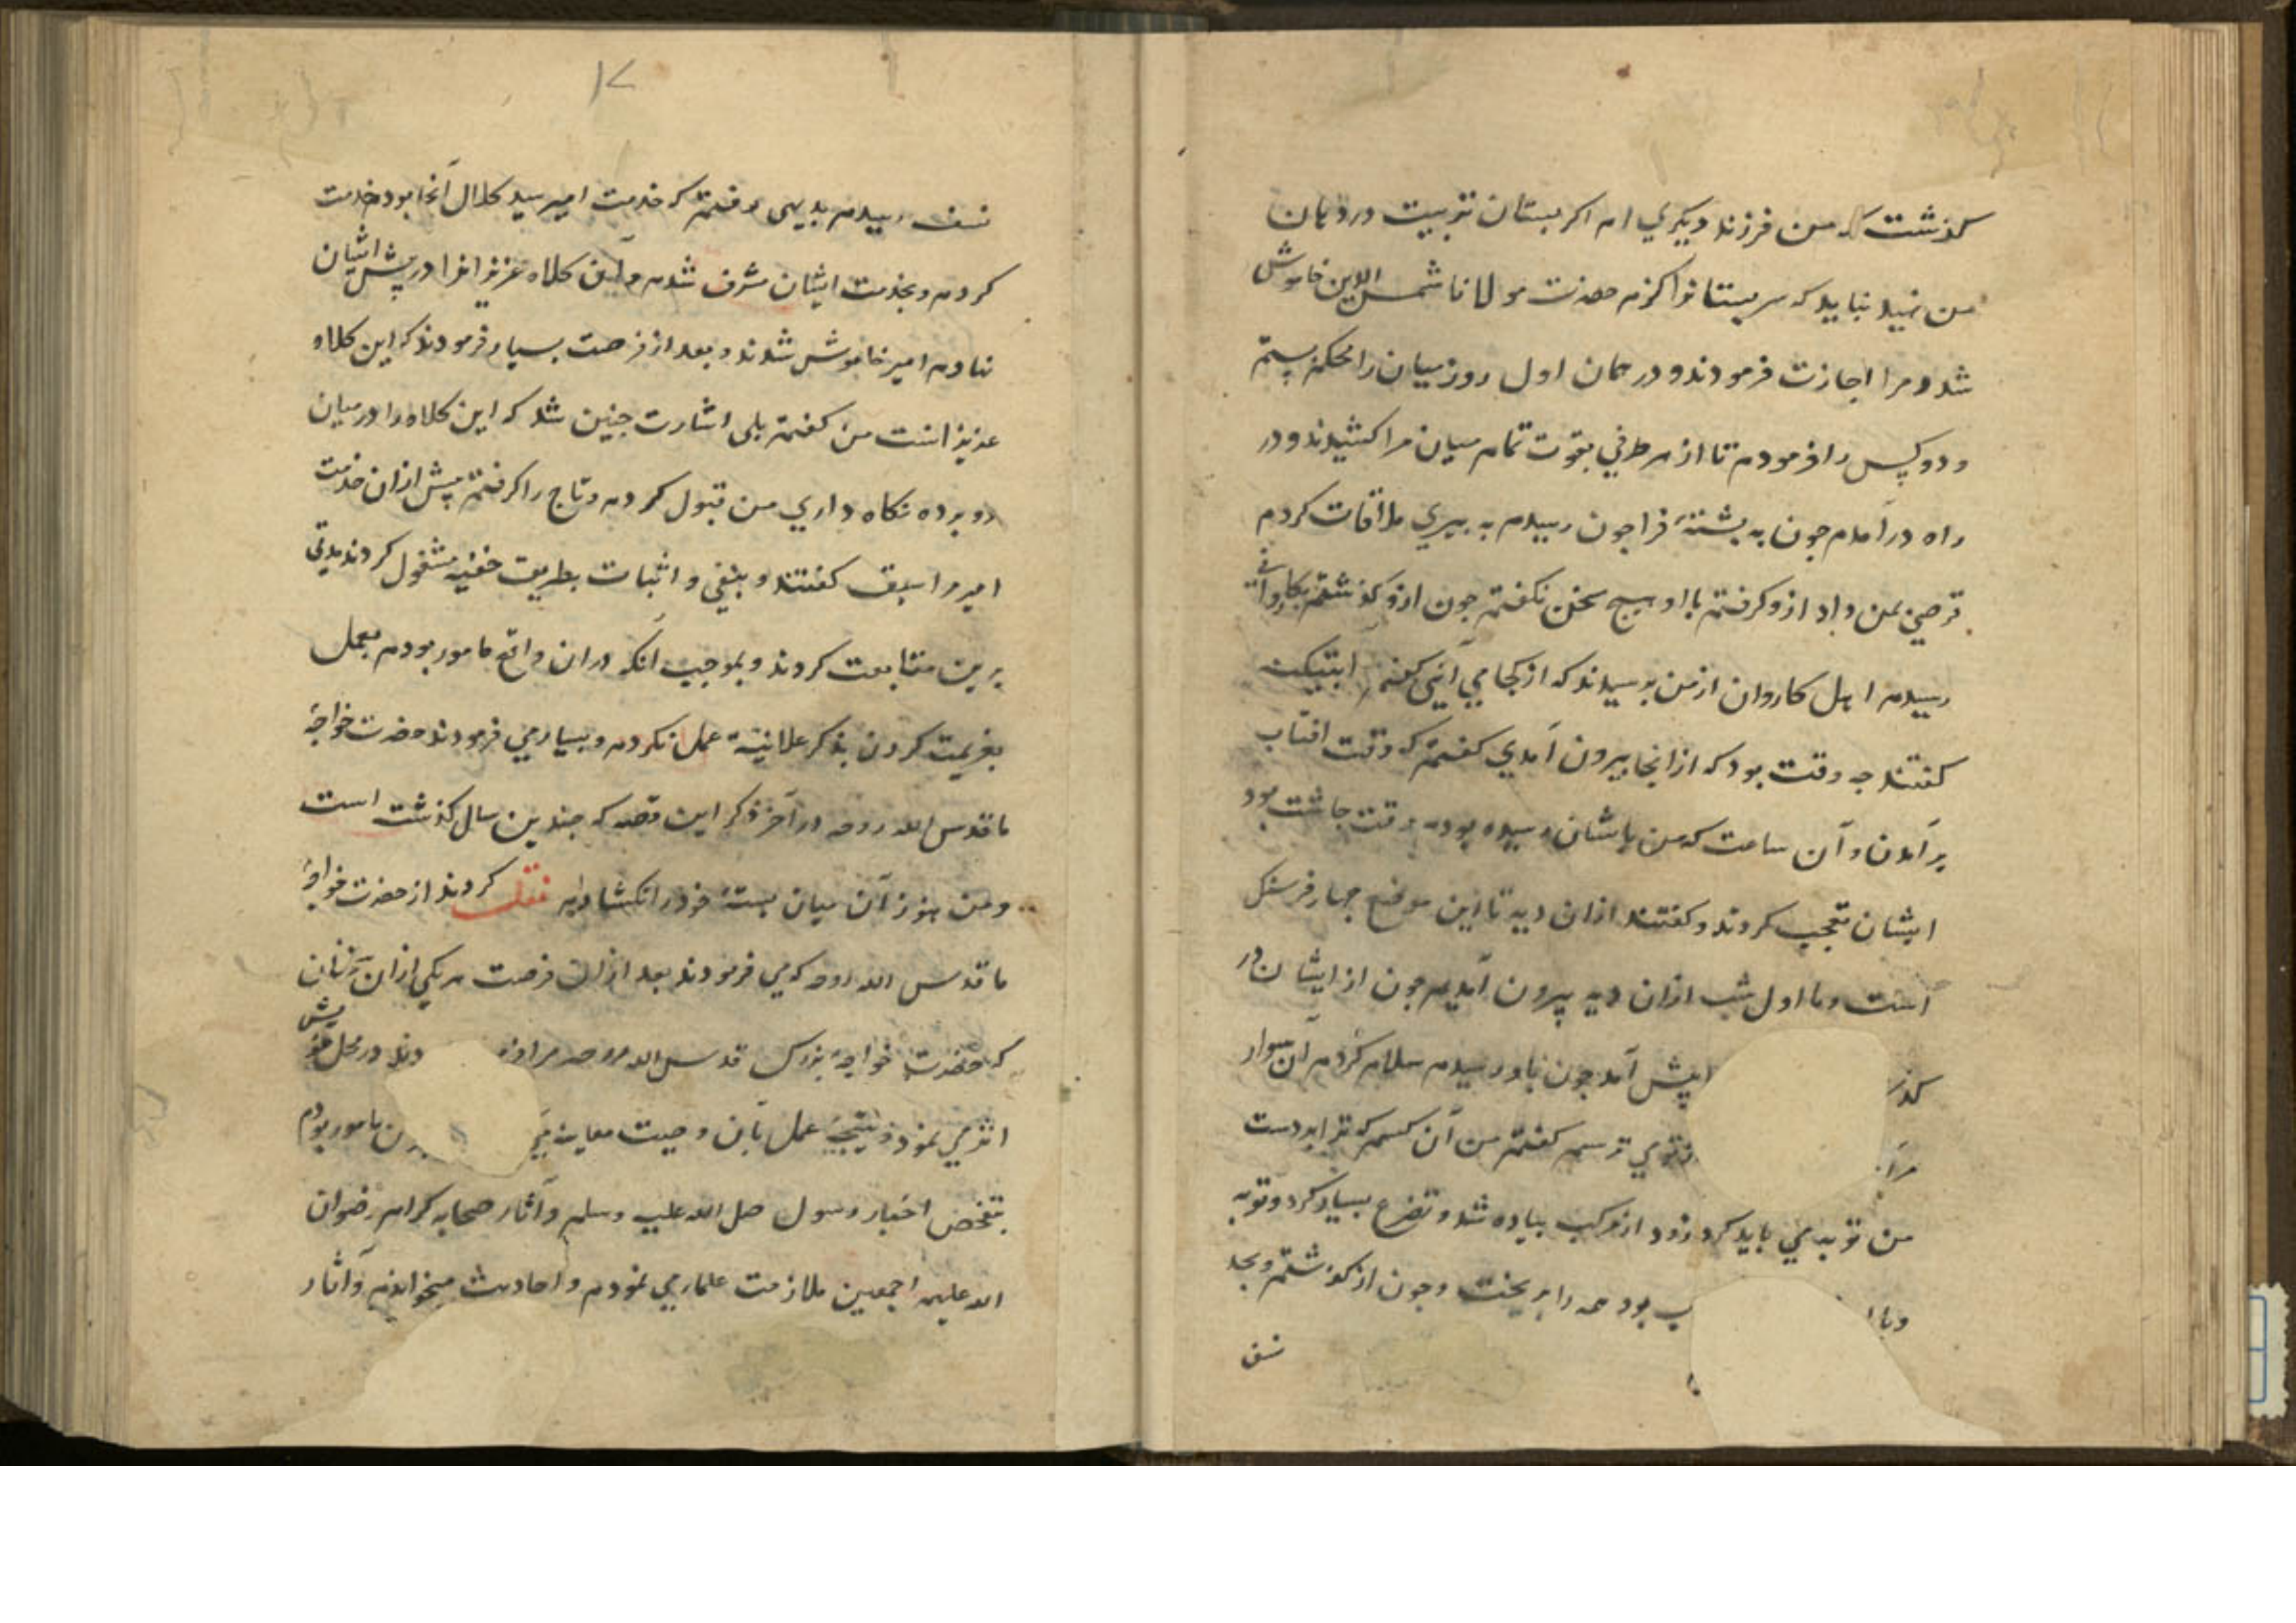 کذشت که من فرزند دیکری ام اکر بستان تربیت در دهان
من نهید نباید که سر بستانرا کزم حضرت مولانا شمس الدین خاموش
شد و مرا اجازت فرمودند و در همان اول روز میان را محکم بستم
و دو کس را فرمودم تا از هر طرفی بقوت تمام میان مرا کشیدند و در
راه درآمدم جون به بشتهٔ فراجون رسیدم به بیری ملاقات کردم
قرصی بمن داد ازو کرفتم با او هیج سخن نکفتم جون ازو کذشتم بکاروانی
رسیدم اهل کاروان از من برسیدند که از کجا می آئی کفتم ابتیکت
کفتند جه وقت بود که از انجا بیرون آمدی کفتم که وقت افتاب
برآمدن و آن ساعت که من باشان رسیده بودم وقت جاشت بود
ایشان تعجب کردند و کفتند ازان دیه تا این موضع جهار فرسنک
است و ما اول شب ازان دیه بیرون آمدیم جون از ایشان در
کذ پیش آمد جون باو رسیدم سلام کردم آن سوار
مرا از تو می ترسم کفتم من آن کسم که ترا بر دست
من توبه می باید کرد زود از مرکب بیاده شد و تضرع بسیار کرد و توبه
و با ب بود همه را بریخت و جون از کذشتم و بحد
نسف
۱۷
نسف رسیدم بدیهی رفتم که خدمت امیر سید کلال آنجا بود خدمت
کردم و بخدمت ایشان مشرف شدم و آن کلاه عزیزانرا در پیش ایشان
نهادم امیر خاموش شدند و بعد از فرصت بسیار فرمودند که این کلاه
عزیزانست من کفتم بلی اشارت جنین شد که این کلاه را در میان
دو برده نکاه داری من قبول کردم و تاج را کرفتم پیش ازان خدمت
امیر مرا سبق کفتند و بنفی و اثبات بطریق خفیه مشغول کردند مدتی
برین متابعت کردند و بموجب آنکه دران واقع مامور بودم بعمل
بعزیمت کردن بذکر علانیه عمل نکردم و بسیار می فرمودند حضرت خواجهٔ
ما قدس الله روحه در آخر ذکر این قصه که جندین سال کذشت است
و من هنوز آن میان بستهٔ خود را نکشاده ام نقلست کردند از حضرت خواجهٔ
ما قدس الله روحه که می فرمودند بعد ازان فرصت هر یکی ازان سخنان
که حضرت خواجهٔ بزرک قدس الله روحه مرا فرمو دند در محل خویش
اثر می نمود و نتیجهٔ عمل بآن وصیت معاینه می رن مامور بودم
بتفحص اخبار رسول صلی الله علیه وسلم و آثار صحابه کرام رضوان
الله علیهم اجمعین ملازمت علما می نمودم و احادیث میخواندم و آثار